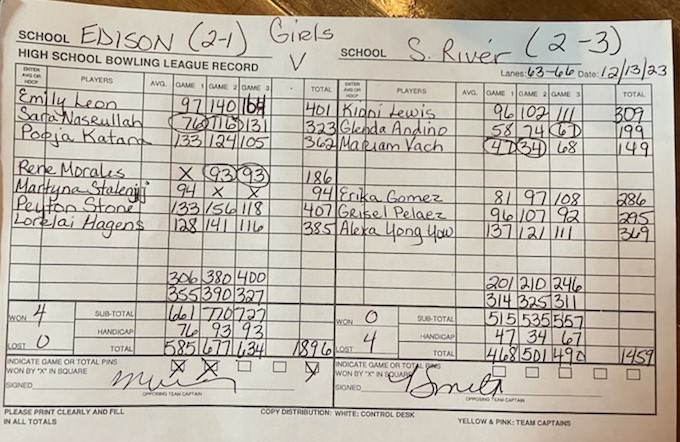 SCHOOL EDISON (2-1) Girls V SCHOOL S. River (2-3)
HIGH SCHOOL BOWLING LEAGUE RECORD Lanes: 63-66 Date: 12/13/23
ENTER AVG OR HDCP PLAYERS AVG. GAME 1 GAME 2 GAME 3 TOTAL ENTER AVG OR HDCP PLAYERS AVG. GAME 1 GAME 2 GAME 3 TOTAL
Emily Leon 97 140 164 401 Kippi Lewis 96 102 111 309
Sara Nasrullah 76 116 131 323 Glenda Andino 58 74 67 199
Pooja Katara 133 124 105 362 Mariam Vach 47 34 68 149
Rene Morales X 93 93 186
Martyna 94 X X 94 Erika Gomez 81 97 108 286
Peyton Stone 133 156 118 407 Grisel Pelaez 96 107 92 295
Lorelai Hagens 128 141 116 385 Alexa Yong You 137 121 111 369
306 380 400 201 210 246
355 390 327 314 325 311
WON 4 SUB-TOTAL 661 770 727 WON 0 SUB-TOTAL 515 535 557
HANDICAP 76 93 93 HANDICAP 47 34 67
LOST 0 TOTAL 585 677 634 1896 LOST 4 TOTAL 468 501 490 1459
INDICATE GAME OR TOTAL PINS WON BY "X" IN SQUARE X X X INDICATE GAME OR TOTAL PINS WON BY "X" IN SQUARE
SIGNED SIGNED
OPPOSING TEAM CAPTAIN OPPOSING TEAM CAPTAIN
PLEASE PRINT CLEARLY AND FILL IN ALL TOTALS COPY DISTRIBUTION: WHITE: CONTROL DESK YELLOW & PINK: TEAM CAPTAINS